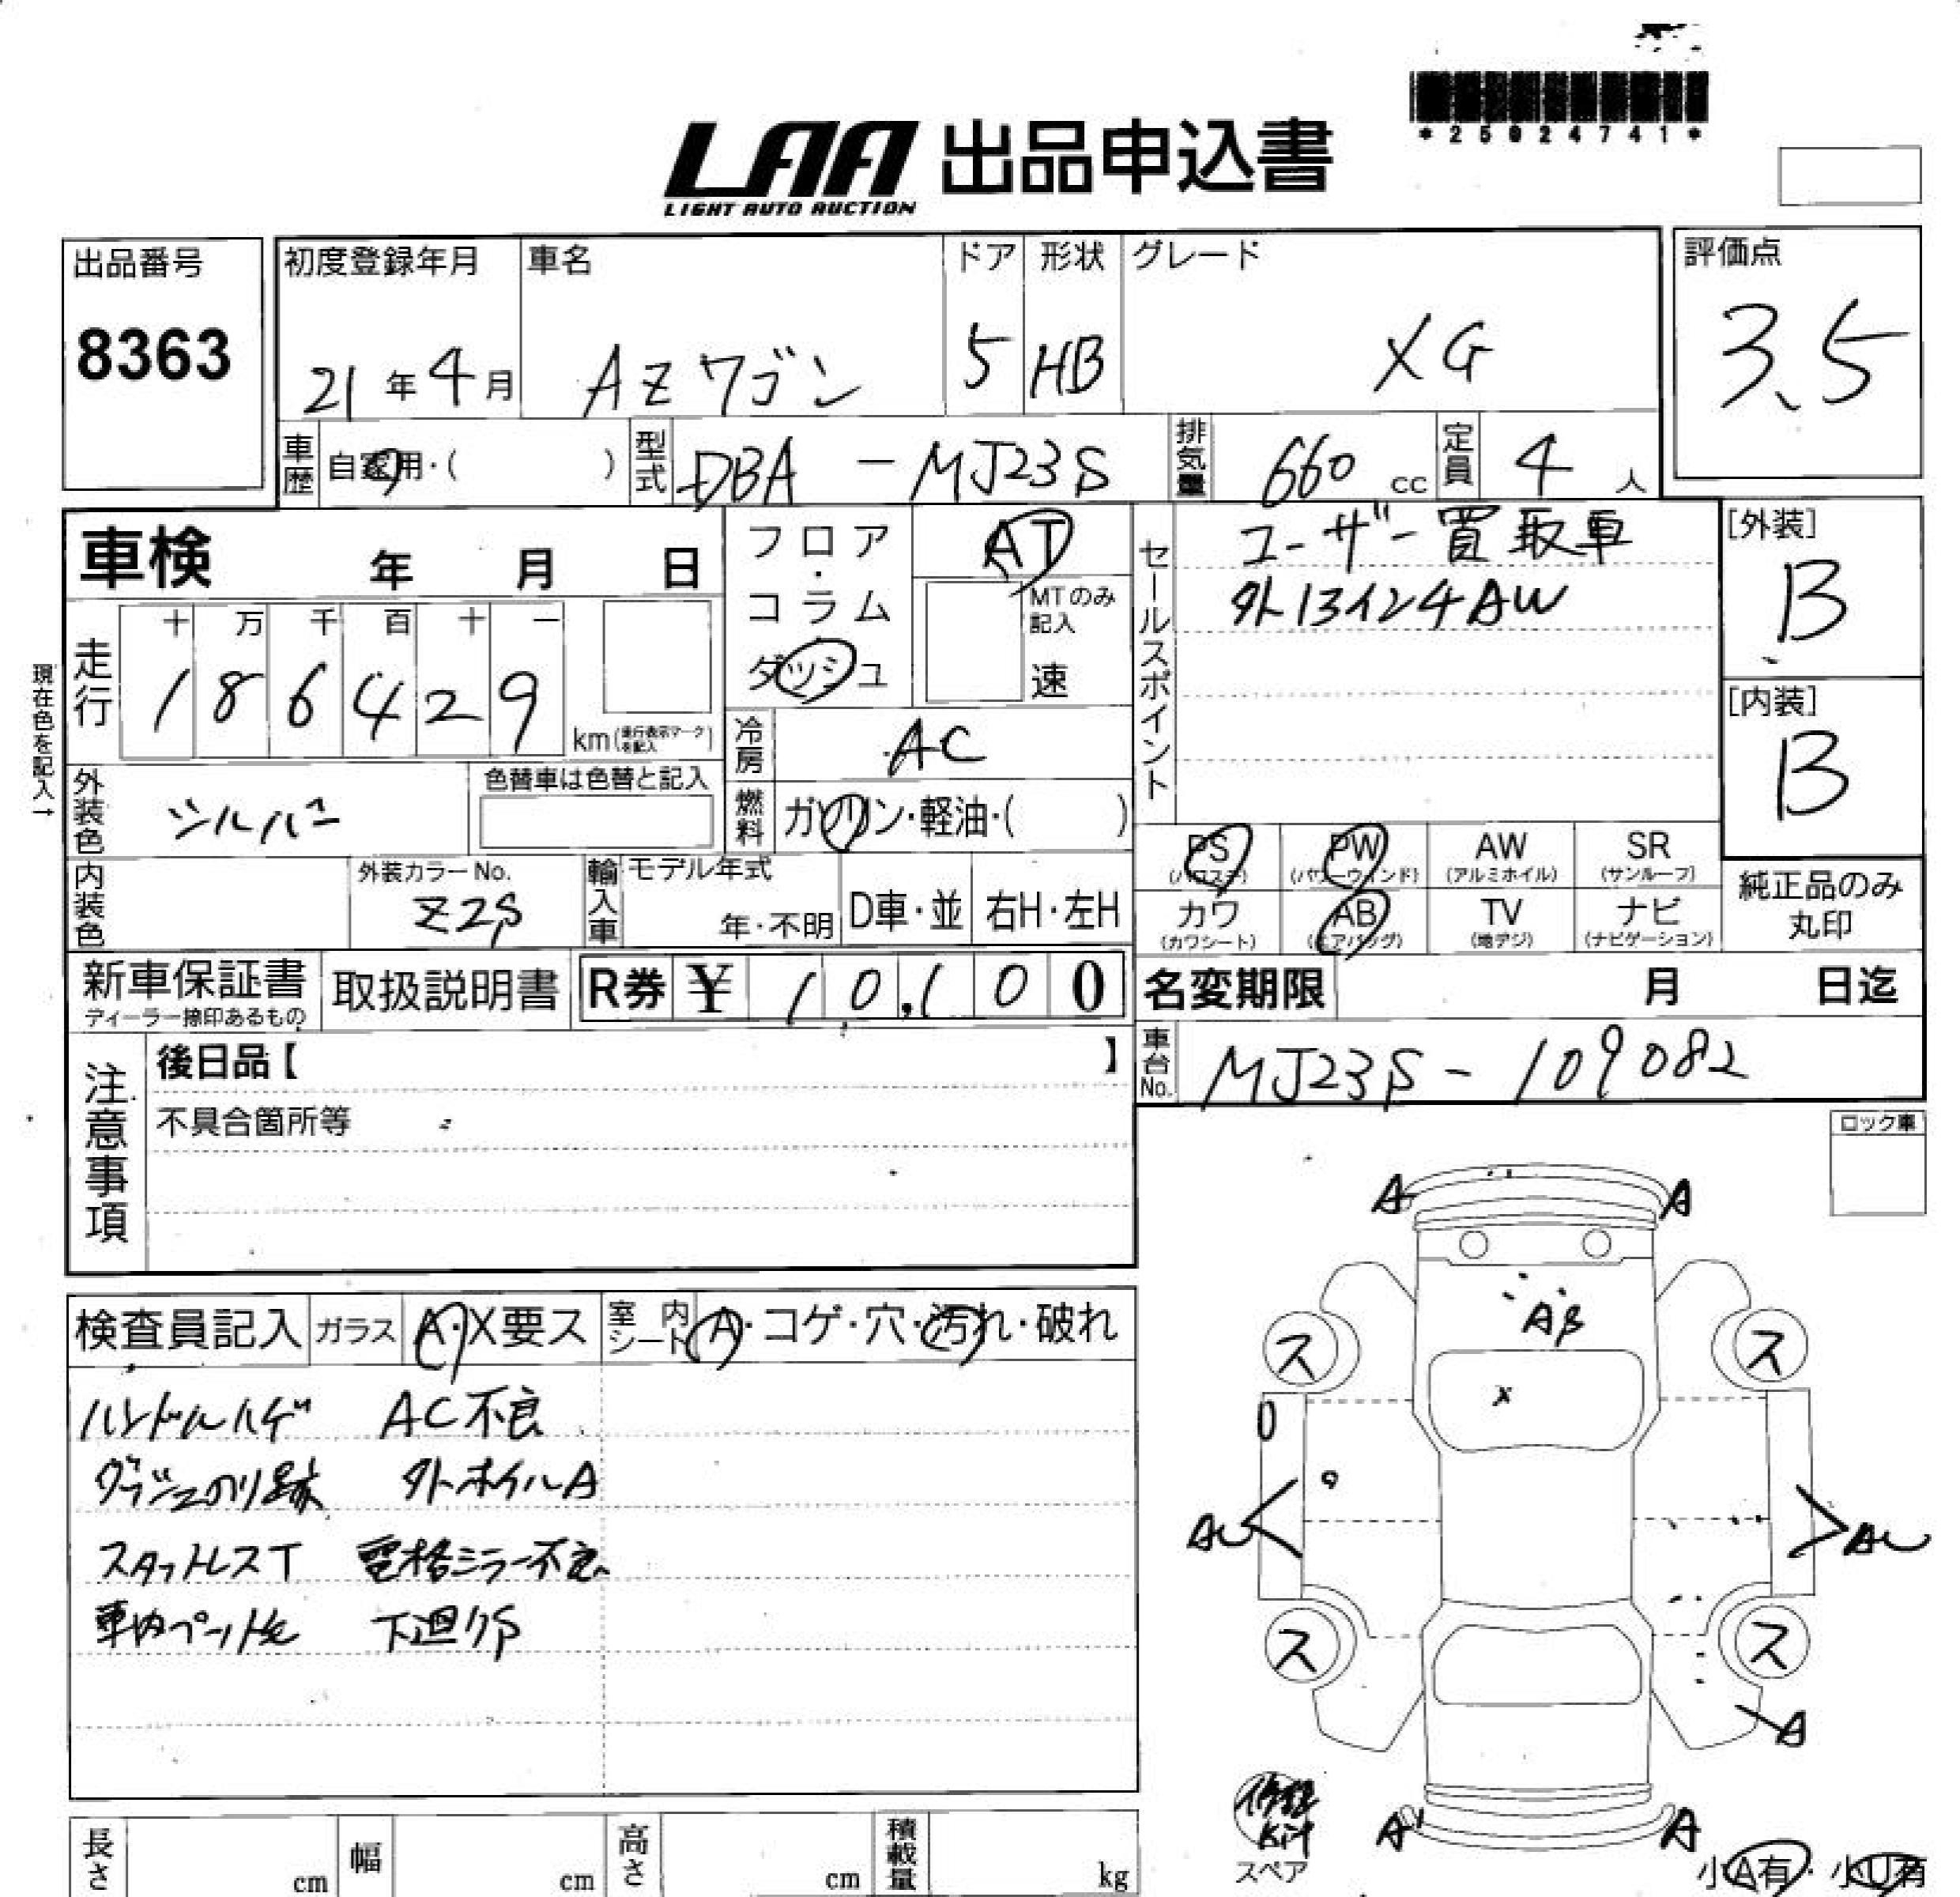 *25024741*
LAA 出品申込書
LIGHT AUTO AUCTION
出品番号
8363
初度登録年月
21年4月
車名
AZワゴン
ドア
5
形状
HB
グレード
XG
評価点
3.5
車歴 自家用・( )
型式 DBA-MJ23S
排気量 660 cc
定員 4 人
車検 年 月 日
フロア・コラム
ダッシュ
AT
MTのみ記入
速
セールスポイント
ユーザー買取車
外13インチAW
[外装]
B
[内装]
B
現在色を記入→
走行
十 万 千 百 十 一
1 8 6 4 2 9
km(走行表示マークを記入)
冷房 AC
外装色 シルバー
色替車は色替と記入
燃料 ガソリン・軽油・( )
PS (パワステ)
PW (パワーウインド)
AW (アルミホイル)
SR (サンルーフ)
カワ (カワシート)
AB (エアバッグ)
TV (地デジ)
ナビ (ナビゲーション)
純正品のみ丸印
内装色
外装カラーNo.
Z2S
輸入車
モデル年式
年・不明
D車・並
右H・左H
新車保証書
ディーラー捺印あるもの
取扱説明書
R券 ¥ 10,100
名変期限 月 日迄
車台No. MJ23S-109082
注意事項
後日品【 】
不具合箇所等
ロック車
検査員記入
ガラス A・X要ス
室内シート A・コゲ・穴・汚れ・破れ
ハンドルハゲ AC不良
ダッシュのり跡 外ホイルA
スタットレスT 電格ミラー不良
車内ペット毛 下廻りS
A A
ス ス
X
AU AU
ス ス
A
A A
Kit
スペア
小A有・小U有
長さ cm
幅 cm
高さ cm
積載量 kg